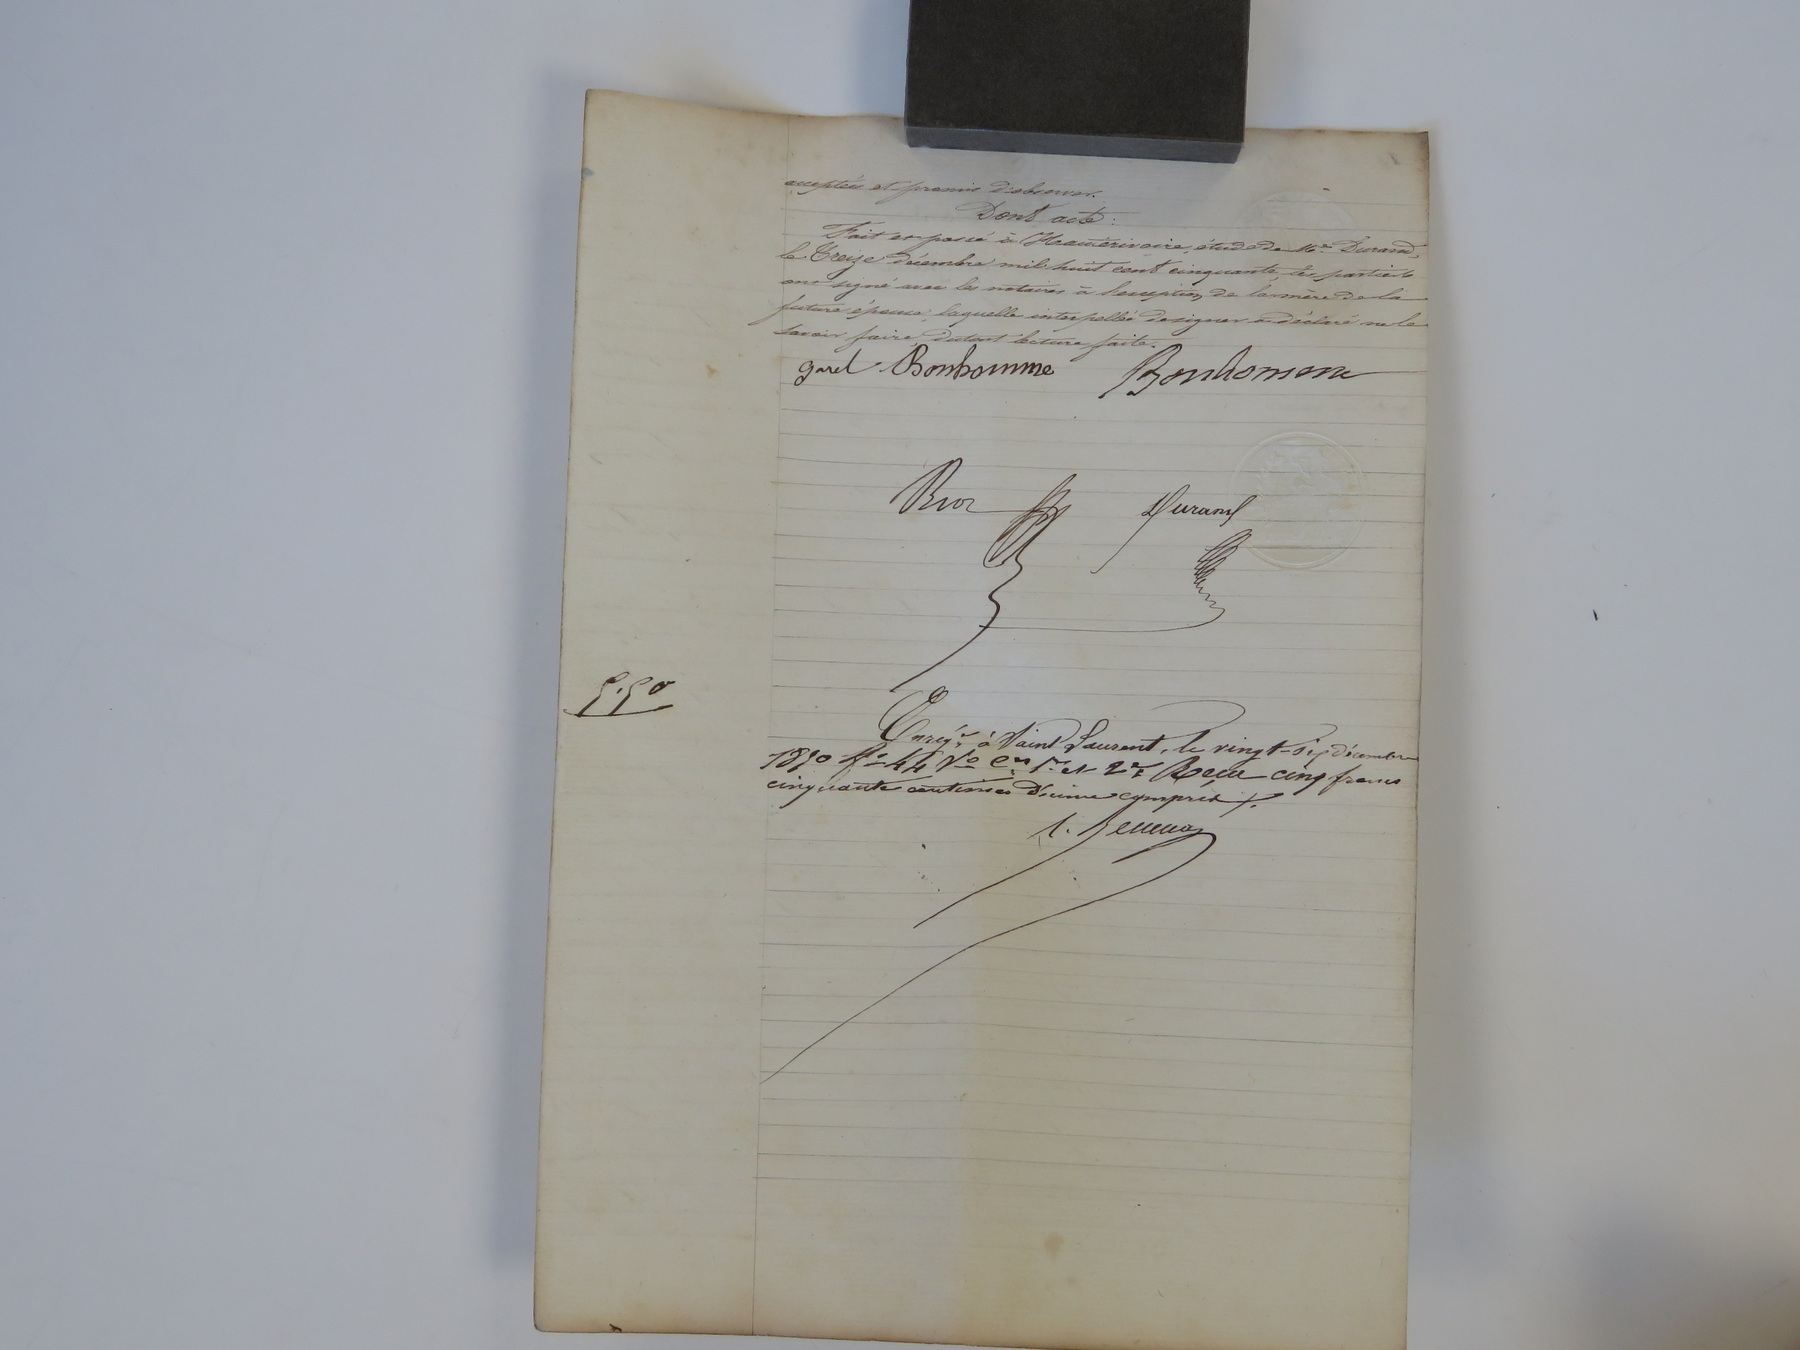 acceptées et promis d'observer.
Dont acte :
Fait et passé à Hauterivoire, étude de Me. Durand,
le Treize décembre mil huit cent cinquante, les parties
ont signé avec les notaires à l'exception de la mère de la
future épouse, laquelle interpellée de signer a déclaré ne le
savoir faire, dutout lecture faite.
garel Bonhomme Bonhomme
Durand
5.50
Enregé. à Saint Laurent, le vingt-six décembre
1850 fo 44 Vo Ces 1re et 2e. Reçu cinq francs
cinquante centimes Décime compris